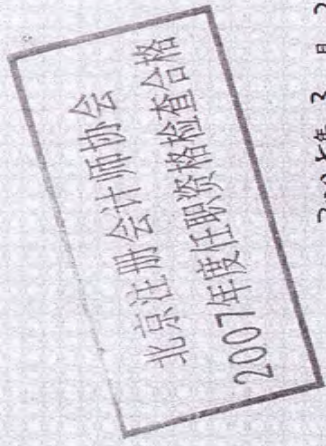 北京注册会计师协会
2007年度任职资格检查合格
2007年 3 月 2